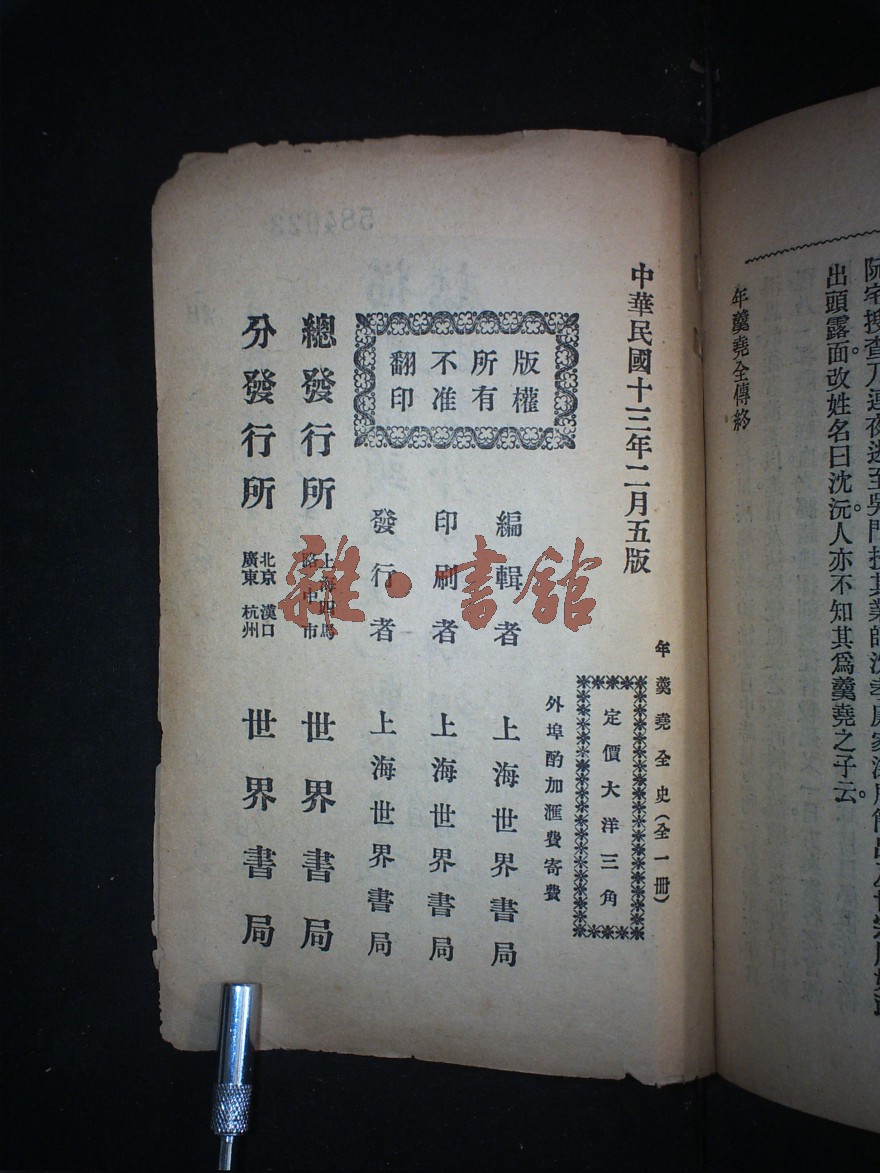 阮宅搜查乃連夜逃至吳門投其業師沈孝
出頭露面改姓名曰沈沅人亦不知其爲羹堯之子云。
年羹堯全傳終
中華民國十三年二月五版
年羹堯全史(全一冊)
定價大洋三角
外埠酌加滙費寄費
版權
所有
不准
翻印
編輯者 上海世界書局
印刷者 上海世界書局
發行者 上海世界書局
總發行所 上海四馬路中市 世界書局
分發行所 北京 漢口 廣東 杭州 世界書局
雜·書館
584023